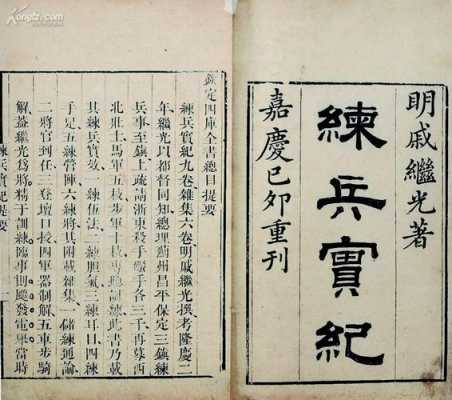 Kongfz.com
明戚繼光著
練兵實紀
嘉慶己卯重刊
欽定四庫全書總目提要
練兵實紀九卷雜集六卷明戚繼光撰考隆慶二
年繼光以都督同知總理薊州昌平保定三鎮練
兵事至鎮上疏請浙東殺手手各三千再募西
北壯士馬軍五枝步軍十枝專聽訓練此書乃載
其練兵實效一練伍法二練膽氣三練耳目四練
手足五練營陣六練將其附載雜集一儲練通論
二將官到任三登壇口授四軍器制解五車步騎
解蓋繼光爲將精于訓練臨事則飈發電舉當時
練兵實紀提要